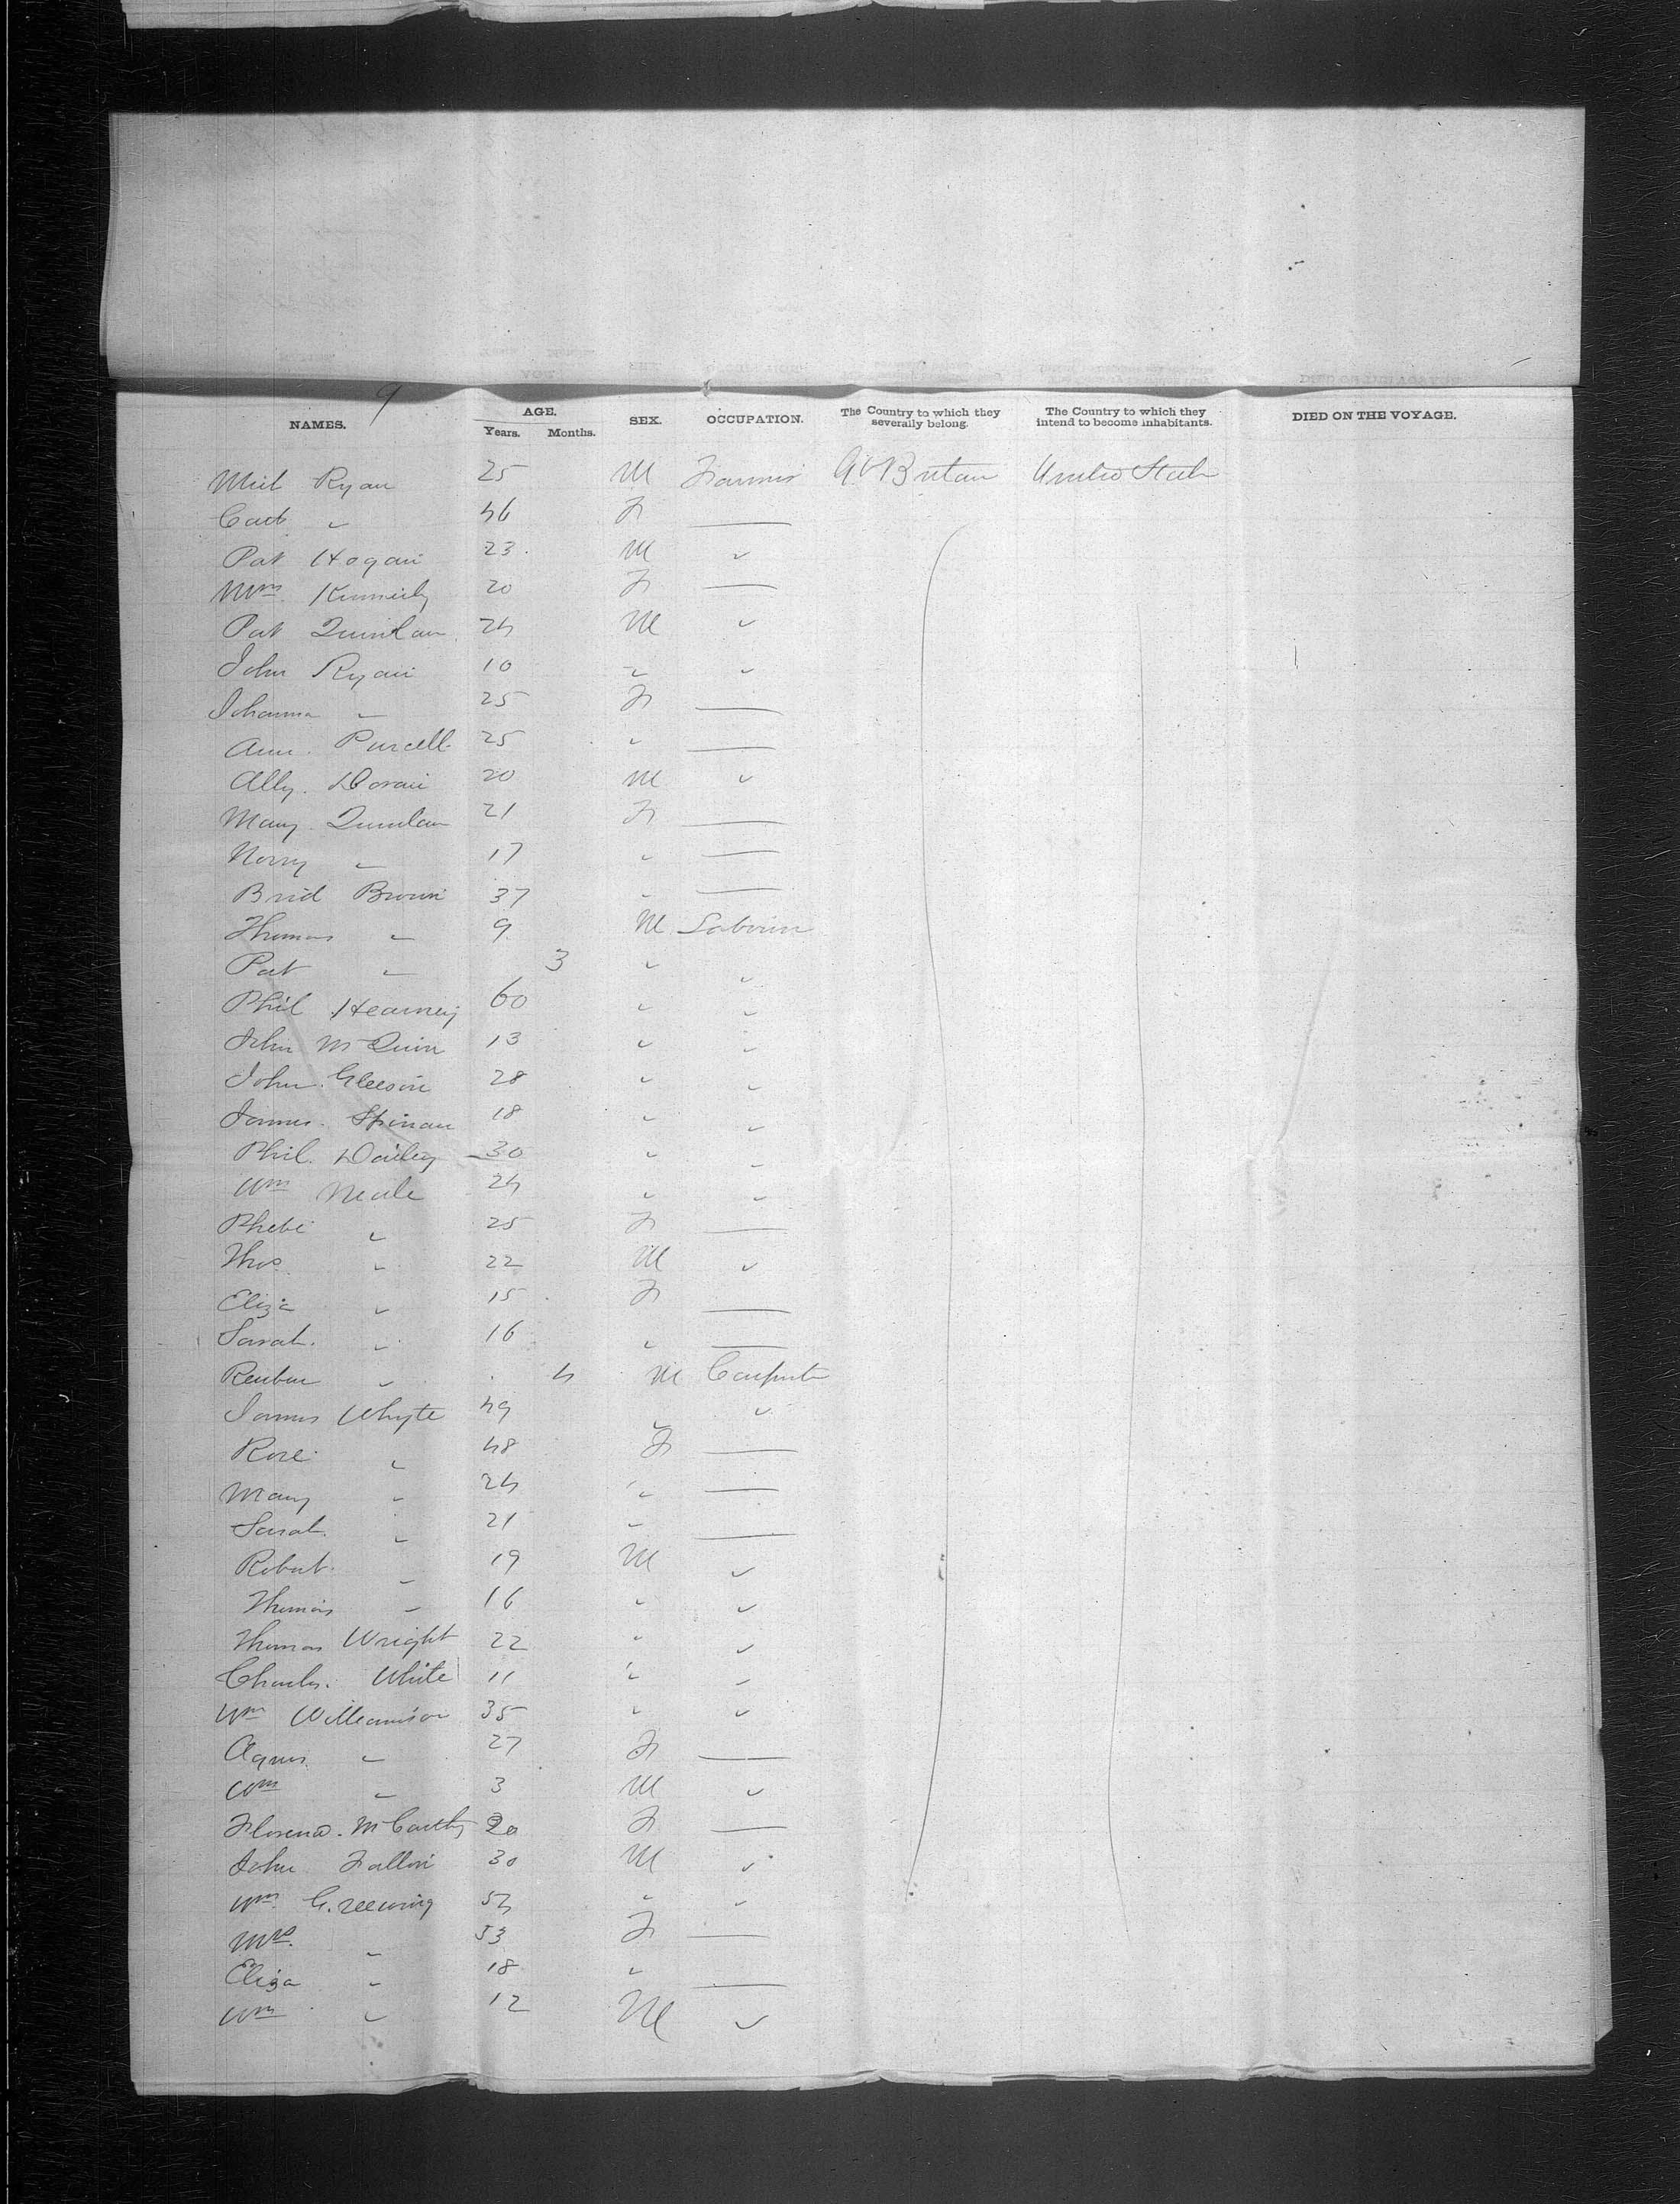 9
NAMES. AGE. Years. Months. SEX. OCCUPATION. The Country to which they severally belong. The Country to which they intend to become inhabitants. DIED ON THE VOYAGE.
Mich Ryan 25 M Farmer Gt Britain United State
Cath " 46 F —
Pat Hogan 23 M "
Mrs. Kennedy 20 F —
Pat Quinlan 24 M "
John Ryan 10 " "
Johanna " 25 F —
Ann Purcell 25 " —
Ally Doran 20 M "
Mary Quinlan 21 F —
Norry " 17 " —
Brid Brown 37 " —
Thomas " 9 M Labourer
Pat " 3 " "
Phil Hearney 60 " "
John McQuin 13 " "
John Gleeson 28 " "
James 18 " "
Phil Dailey 30 " "
Wm Neale 24 " "
Phebe " 25 F —
Thos " 22 M "
Eliza " 15 F —
Sarah " 16 " —
Reuben " 4 M Carpenter
James Whyte 49 " "
Rose " 48 F —
Mary " 24 " —
Sarah " 21 " —
Robert " 19 M "
Thomas " 16 " "
Thomas Wright 22 " "
Charles White 11 " "
Wm Williamson 35 " "
Agnes " 27 F —
Wm " 3 M "
Florence McCarthy 20 F —
John Fallon 30 M "
Wm 54 " "
Mrs. " 53 F —
Eliza " 18 " —
Wm " 12 M "